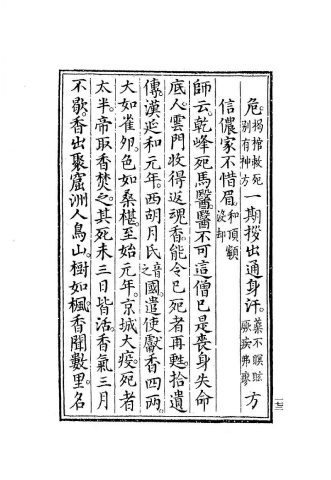 危揭棺救死別有神方一期拶出通身汗藥不瞑眩厥疾弗瘳方
信儂家不惜眉和頂䫙沒却
師云乾峰死馬醫醫不可這僧已是喪身失命
底人雲門收得返魂香能令已死者再甦拾遺
傳漢延和元年西胡月氏音之國遣使獻香四兩
大如雀卵色如桑椹至始元年京城大疫死者
太半帝取香焚之其死未三日皆活香氣三月
不歇香出聚窟洲人鳥山樹如楓香聞數里名